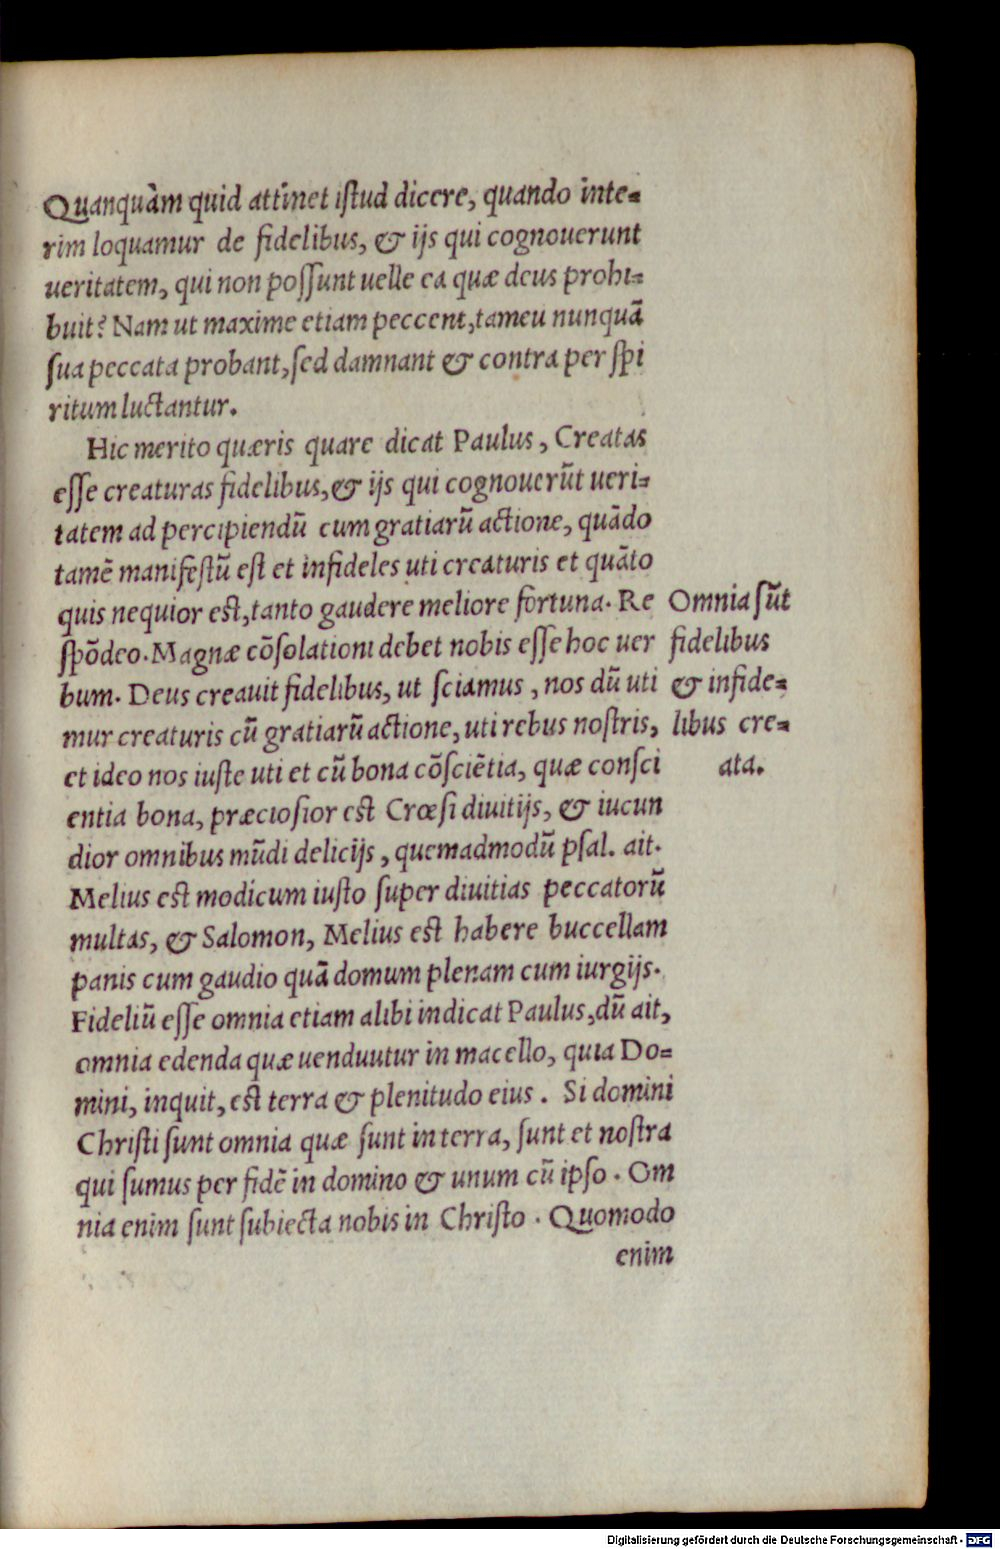 Quanquàm quid attinet iſtud dicere, quando inte⸗
rim loquamur de fidelibus, & ijs qui cognouerunt
ueritatem, qui non poſſunt uelle ea quæ deus prohi⸗
buit? Nam ut maxime etiam peccent, tameu nunquā
ſua peccata probant, ſed damnant & contra per ſpi
ritum luctantur.
Hic merito quæris quare dicat Paulus, Creatas
eſſe creaturas fidelibus, & ijs qui cognouerūt ueri⸗
tatem ad percipiendū cum gratiarū actione, quādo
tamē manifeſtū eſt et infideles uti creaturis et quāto
quis nequior eſt, tanto gaudere meliore fortuna. Re
ſpōdeo. Magnæ cōſolationi debet nobis eſſe hoc uer
bum. Deus creauit fidelibus, ut ſciamus, nos dū uti
mur creaturis cū gratiarū actione, uti rebus noſtris,
et ideo nos iuſte uti et cū bona cōſciētia, quæ conſci
entia bona, præcioſior eſt Crœſi diuitijs, & iucun
dior omnibus mūdi delicijs, quemadmodū pſal. ait.
Melius eſt modicum iuſto ſuper diuitias peccatorū
multas, & Salomon, Melius eſt habere buccellam
panis cum gaudio quā domum plenam cum iurgijs.
Fideliū eſſe omnia etiam alibi indicat Paulus, dū ait,
omnia edenda quæ uenduutur in macello, quia Do⸗
mini, inquit, eſt terra & plenitudo eius. Si domini
Chriſti ſunt omnia quæ ſunt in terra, ſunt et noſtra
qui ſumus per fidē in domino & unum cū ipſo. Om
nia enim ſunt ſubiecta nobis in Chriſto. Quomodo
enim
Omnia ſūt
fidelibus
& infide⸗
libus cre⸗
ata.
Digitalisierung gefördert durch die Deutsche Forschungsgemeinschaft - DFG